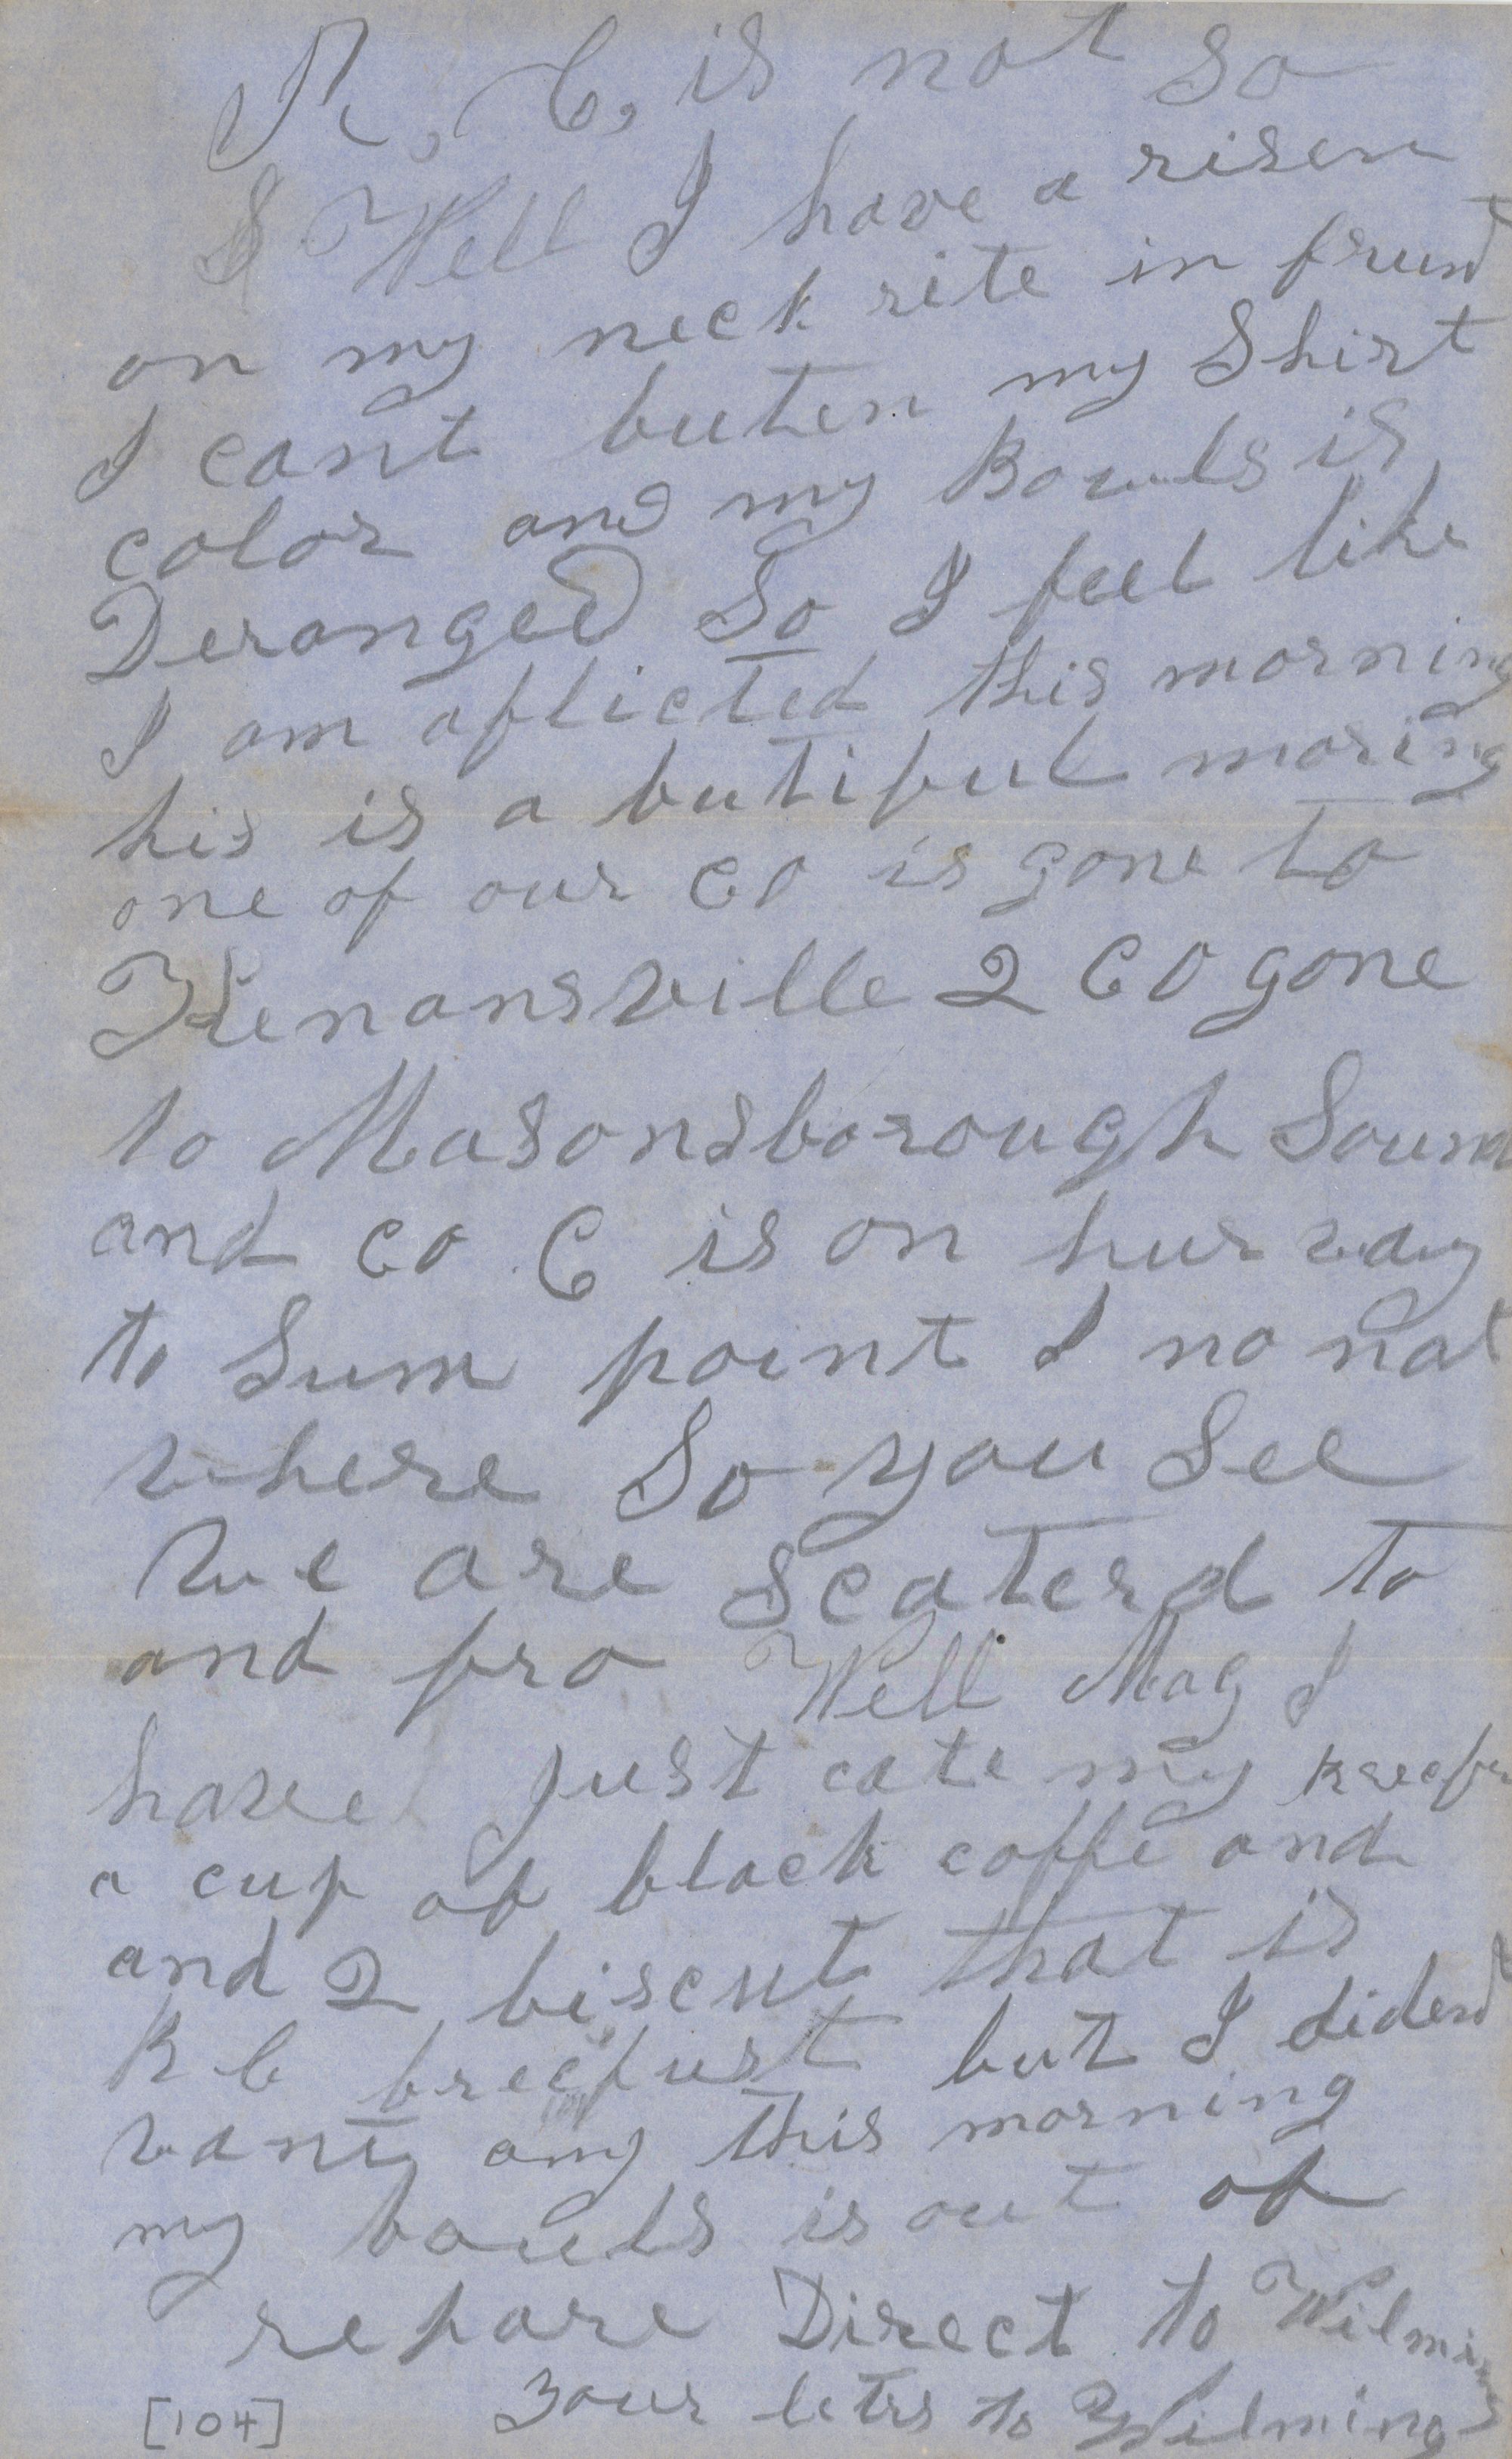 R. C, is not so
Well I have a risen
on my neck rite in frunt
I cant buten my Shirt
color and my Bowels is
Deranged So I feel like
I am aflicted this morning
his is a butiful moring
one of our co is gone to
Kenansville 2 CO gone
to Masonsborough Sound
and co C is on hur way
to Sum point I no not
where So you See
We are Scaterd to
and fro Well Mag I
have Just eate my
a cup of black coffe and
and 2 biscut that is
R C brecfust but I dident
want any this morning
my bouels is out of
repare Direct to Wilming
your letrs to Wilming
[104]